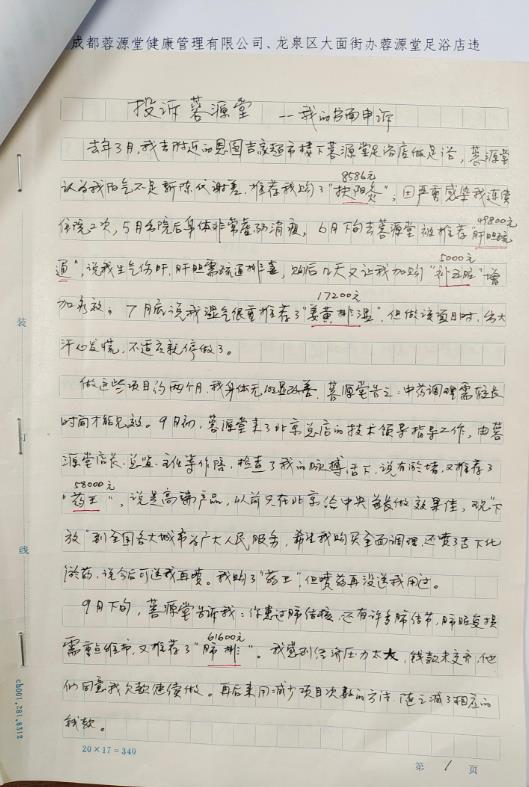 成都蓉源堂健康管理有限公司、龙泉区大面街办蓉源堂足浴店违
投诉蓉源堂 --我的书面申诉
去年3月,我去附近的恩图吉家超市楼下蓉源堂足浴店做足浴,蓉源堂
8586元
认为我阳气不足新陈代谢差,推荐我购了"扶阳灸",因严重感染我连续
住院2次,5月出院后身体非常虚弱消瘦,6月下旬去蓉源堂被推荐肝胆疏
49800元
通",说我生气伤肝,肝胆需疏通排毒,购后几天又让我加购"补五脏"增
5000元
加负效。7月底说我湿气很重推荐了"姜黄排湿",但做该项目时,出大
17200元
汗心发慌,不适应就停做了。
做这些项目约两个月,我身体无明显改善,蓉源堂告之:中药调理需较长
时间才能见效。9月初,蓉源堂来了北京总店的技术领导指导工作,由蓉
源堂店长、总监、主任等作陪,检查了我的脉搏舌下,说有瘀堵,又推荐了
58000元
"药王",说是高端产品,以前只在北京给中央首长做效果佳,现"下
放"到全国各大城市为广大人民服务,希望我购买全面调理,还喷了舌下化
瘀药,说今后可送我再喷。我购了"药王",但喷药再没送我用过。
9月下旬,蓉源堂告诉我:你患过肺结核,还有许多肺结节,肺部受损
需重点维护,又推荐了"肺排"。我感到经济压力太大,钱款未交齐,他
61600元
们同意我欠款继续做。再后来用减少项目次数的方法,随之减了相应的
钱款。
装
订
线
cb001.281.8312
20×17=340
第 1 页